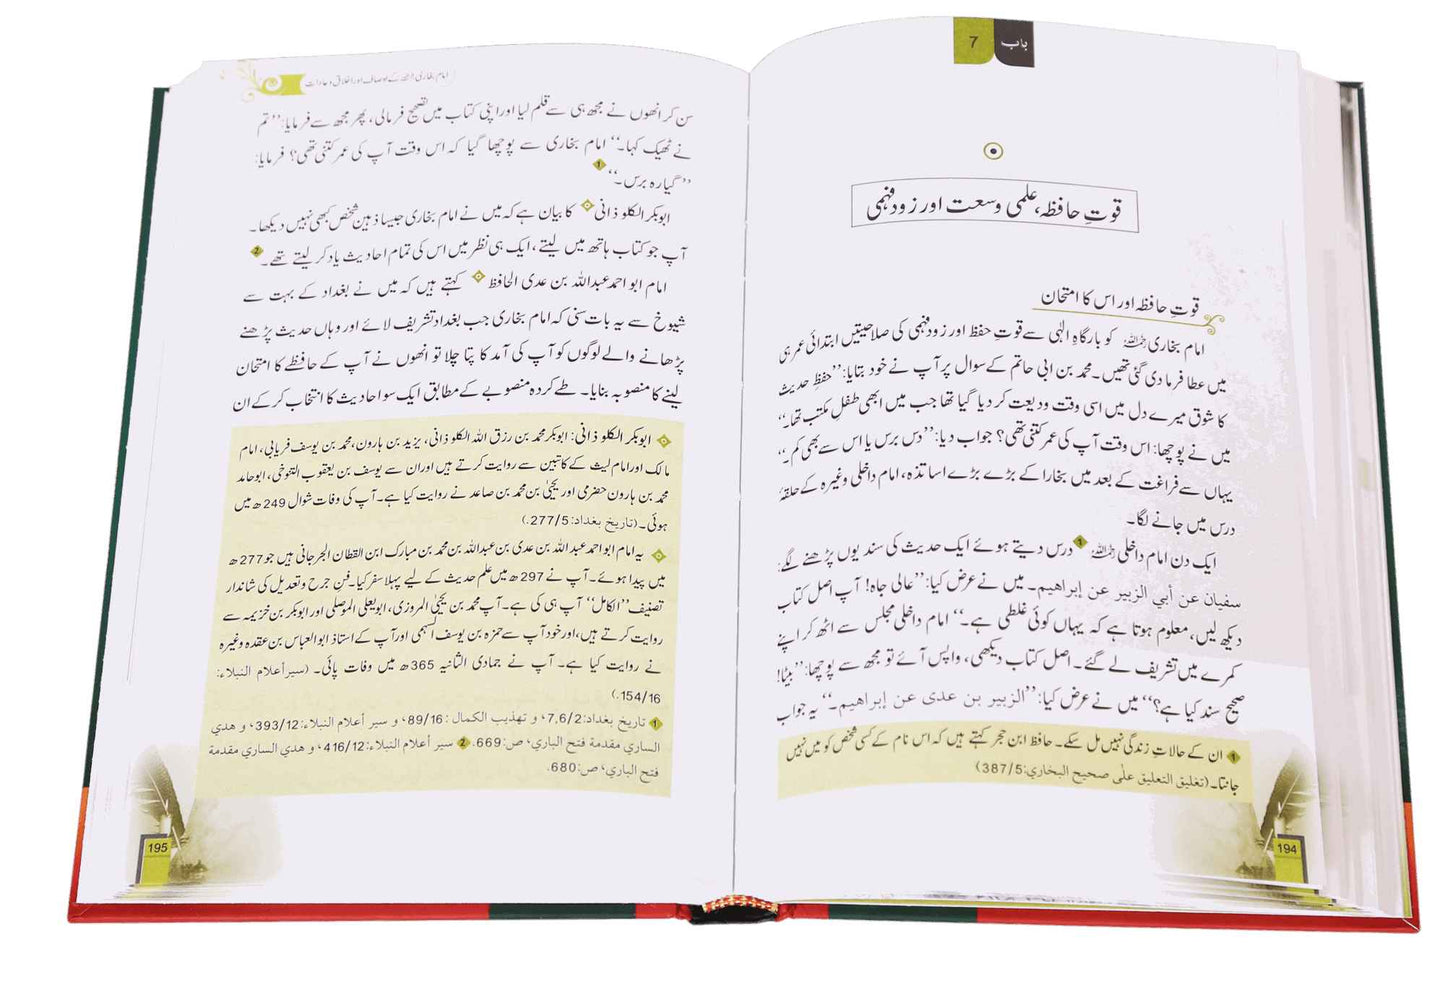 باب 7
قوتِ حافظہ، علمی وسعت اور زود فہمی
قوتِ حافظہ اور اس کا امتحان
امام بخاری رحمہ اللہ کو بارگاہِ الٰہی سے قوتِ حفظ اور زود فہمی کی صلاحیتیں ابتدائی عمر ہی
میں عطا فرما دی گئی تھیں۔ محمد بن ابی حاتم کے سوال پر آپ نے خود بتایا: ’’حفظِ حدیث
کا شوق میرے دل میں اسی وقت ودیعت کر دیا گیا تھا جب میں ابھی طفلِ مکتب تھا۔‘‘
میں نے پوچھا: اس وقت آپ کی عمر کتنی تھی؟ جواب دیا: ’’دس برس یا اس سے بھی کم۔‘‘
یہاں سے فراغت کے بعد میں بخارا کے بڑے بڑے اساتذہ، امام داخلی وغیرہ کے حلقۂ
درس میں جانے لگا۔
ایک دن امام داخلی رحمہ اللہ 1 درس دیتے ہوئے ایک حدیث کی سند یوں پڑھنے لگے:
سفيان عن أبي الزبير عن إبراهيم۔ میں نے عرض کیا: ’’عالی جاہ! آپ اصل کتاب
دیکھ لیں، معلوم ہوتا ہے کہ یہاں کوئی غلطی ہے۔‘‘ امام داخلی مجلس سے اٹھ کر اپنے
کمرے میں تشریف لے گئے۔ اصل کتاب دیکھی، واپس آئے تو مجھ سے پوچھا: ’’بیٹا!
صحیح سند کیا ہے؟‘‘ میں نے عرض کیا: ’’الزبير بن عدی عن إبراهيم۔‘‘ یہ جواب
1 ان کے حالاتِ زندگی نہیں مل سکے۔ حافظ ابن حجر کہتے ہیں کہ اس نام کے کسی شخص کو میں نہیں
جانتا۔ (تغليق التعليق على صحيح البخاري: 387/5)
194
امام بخاری رحمہ اللہ کے اوصاف اور اخلاق و عادات
سن کر انھوں نے مجھ ہی سے قلم لیا اور اپنی کتاب میں تصحیح فرمالی، پھر مجھ سے فرمایا: ’’تم
نے ٹھیک کہا۔‘‘ امام بخاری سے پوچھا گیا کہ اس وقت آپ کی عمر کتنی تھی؟ فرمایا:
’’گیارہ برس۔‘‘ 1
ابوبکر الکلوذانی کا بیان ہے کہ میں نے امام بخاری جیسا ذہین شخص کبھی نہیں دیکھا۔
آپ جو کتاب ہاتھ میں لیتے، ایک ہی نظر میں اس کی تمام احادیث یاد کر لیتے تھے۔ 2
امام ابو احمد عبداللہ بن عدی الحافظ کہتے ہیں کہ میں نے بغداد کے بہت سے
شیوخ سے یہ بات سنی کہ امام بخاری جب بغداد تشریف لائے اور وہاں حدیث پڑھنے
پڑھانے والے لوگوں کو آپ کی آمد کا پتا چلا تو انھوں نے آپ کے حافظے کا امتحان
لینے کا منصوبہ بنایا۔ طے کردہ منصوبے کے مطابق ایک سو احادیث کا انتخاب کر کے ان
ابوبکر الکلوذانی: ابوبکر محمد بن رزق اللہ الکلوذانی، یزید بن ہارون، محمد بن یوسف فریابی، امام
مالک اور امام لیث کے کاتبین سے روایت کرتے ہیں اور ان سے یوسف بن یعقوب التنوخی، ابوحامد
محمد بن ہارون حضرمی اور یحییٰ بن محمد بن صاعد نے روایت کیا ہے۔ آپ کی وفات شوال 249ھ میں
ہوئی۔ (تاریخ بغداد: 277/5.)
یہ امام ابو احمد عبداللہ بن عدی بن عبداللہ بن محمد بن مبارک ابن القطان الجرجانی ہیں جو 277ھ
میں پیدا ہوئے۔ آپ نے 297ھ میں علم حدیث کے لیے پہلا سفر کیا۔ فن جرح و تعدیل کی شاندار
تصنیف ’’الکامل‘‘ آپ ہی کی ہے۔ آپ محمد بن یحییٰ المروزی، ابویعلی الموصلی اور ابوبکر بن خزیمہ سے
روایت کرتے ہیں، اور خود آپ سے حمزہ بن یوسف السہمی اور آپ کے استاذ ابوالعباس بن عقدہ وغیرہ
نے روایت کیا ہے۔ آپ نے جمادی الثانیہ 365ھ میں وفات پائی۔ (سير أعلام النبلاء:
154/16.)
1 تاريخ بغداد: 7,6/2، و تهذيب الكمال: 89/16، و سير أعلام النبلاء: 393/12، و هدي
الساري مقدمة فتح الباري، ص: 669. 2 سير أعلام النبلاء: 416/12، و هدي الساري مقدمة
فتح الباري، ص: 680.
195